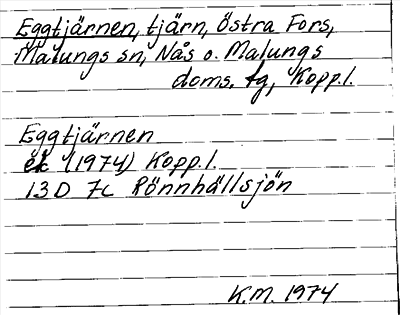 Eggtjärnen, tjärn, Östra Fors,
Malungs sn, Nås o. Malungs
doms. tg, Kopp.l.
Eggtjärnen
ek (1974) Kopp.l.
13 D 7c Rönnhällsjön
K.M. 1974